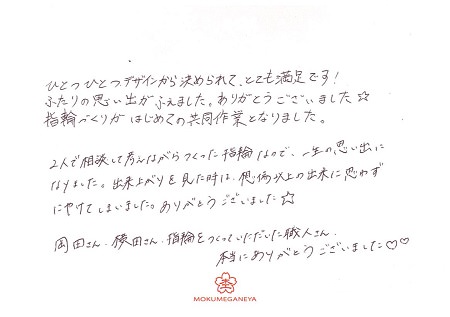 ひとつひとつデザインから決められて、とても満足です!
ふたりの思い出がふえました。ありがとうございました☆
指輪づくりが はじめての共同作業となりました。
2人で相談して考えながらつくった指輪なので、一生の思い出に
なりました。出来上がりを見た時は、想像以上の出来に思わず
にやけてしまいました。ありがとうございました☆
岡田さん、横田さん、指輪をつくっていただいた職人さん、
本当にありがとうございました♡♡
MOKUMEGANEYA